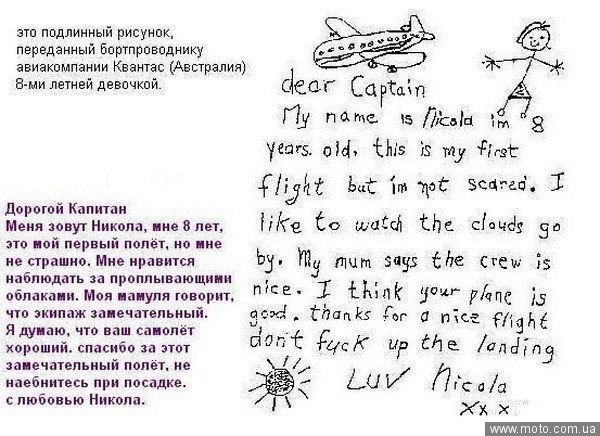 это подлинный рисунок,
переданный бортпроводнику
авиакомпании Квантас (Австралия)
8-ми летней девочкой.
dear Captain
My name is Nicola im 8
years old, this is my first
flight but im not scared. I
like to watch the clouds go
by. My mum says the crew is
nice. I think your plane is
good. thanks for a nice flight
don't fuck up the landing
LUV Nicola
xx x
Дорогой Капитан
Меня зовут Никола, мне 8 лет,
это мой первый полёт, но мне
не страшно. Мне нравится
наблюдать за проплывающими
облаками. Моя мамуля говорит,
что экипаж замечательный.
Я думаю, что ваш самолёт
хороший. спасибо за этот
замечательный полёт, не
наебнитесь при посадке.
с любовью Никола.
www.moto.com.ua